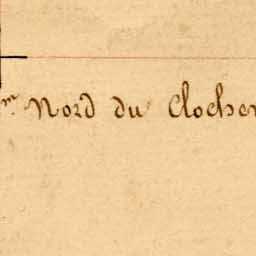 m. Nord du Clocher